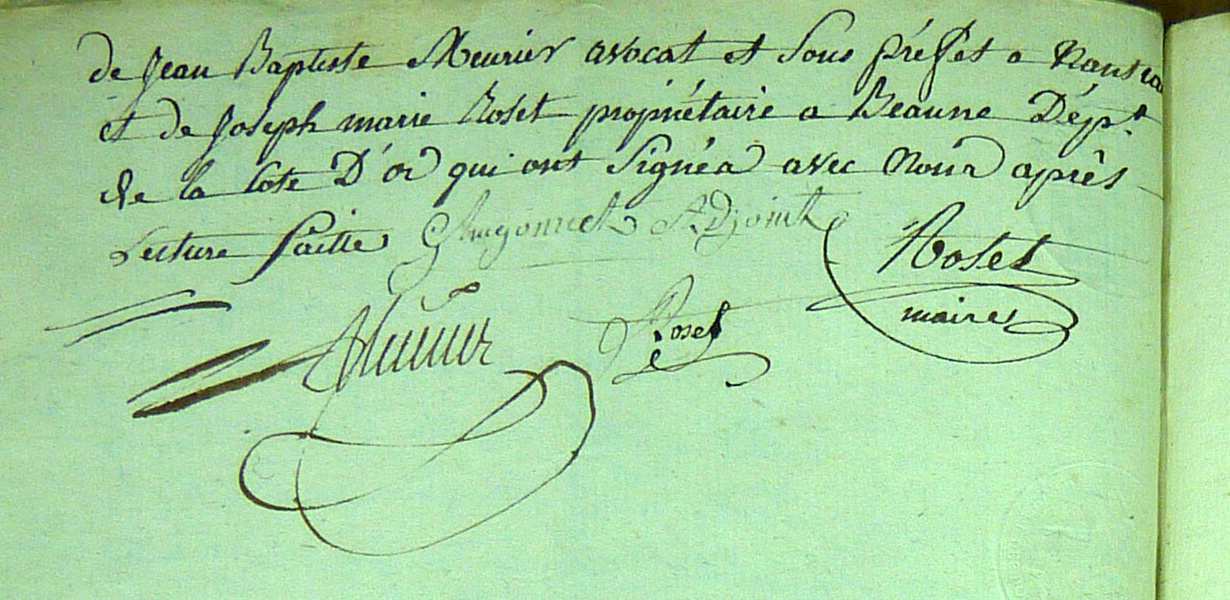 de Jean Baptiste Meurier avocat et Sous préfet a Nantua
et de Joseph marie Roset propriétaire a Beaune Dépt.
de la Cote D'or qui ont Signés avec Nous après
Lecture faitte Adjoint Roset
maire
Meurier Roset